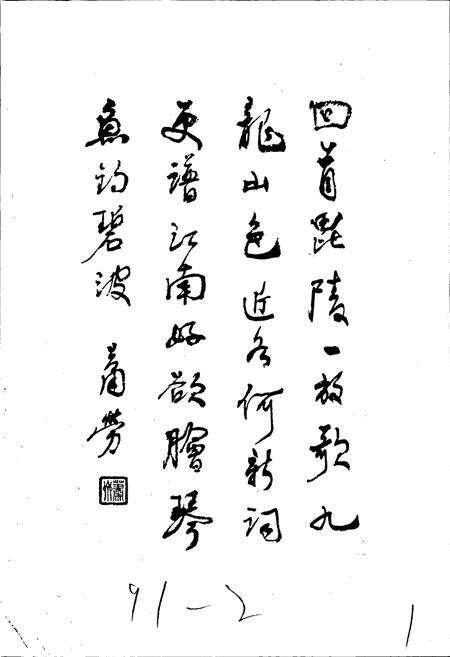 回首毗陵一放歌九
龍山色近如何新詞
更譜江南好欲膾琴
魚釣碧波
蕭勞
91-2
1